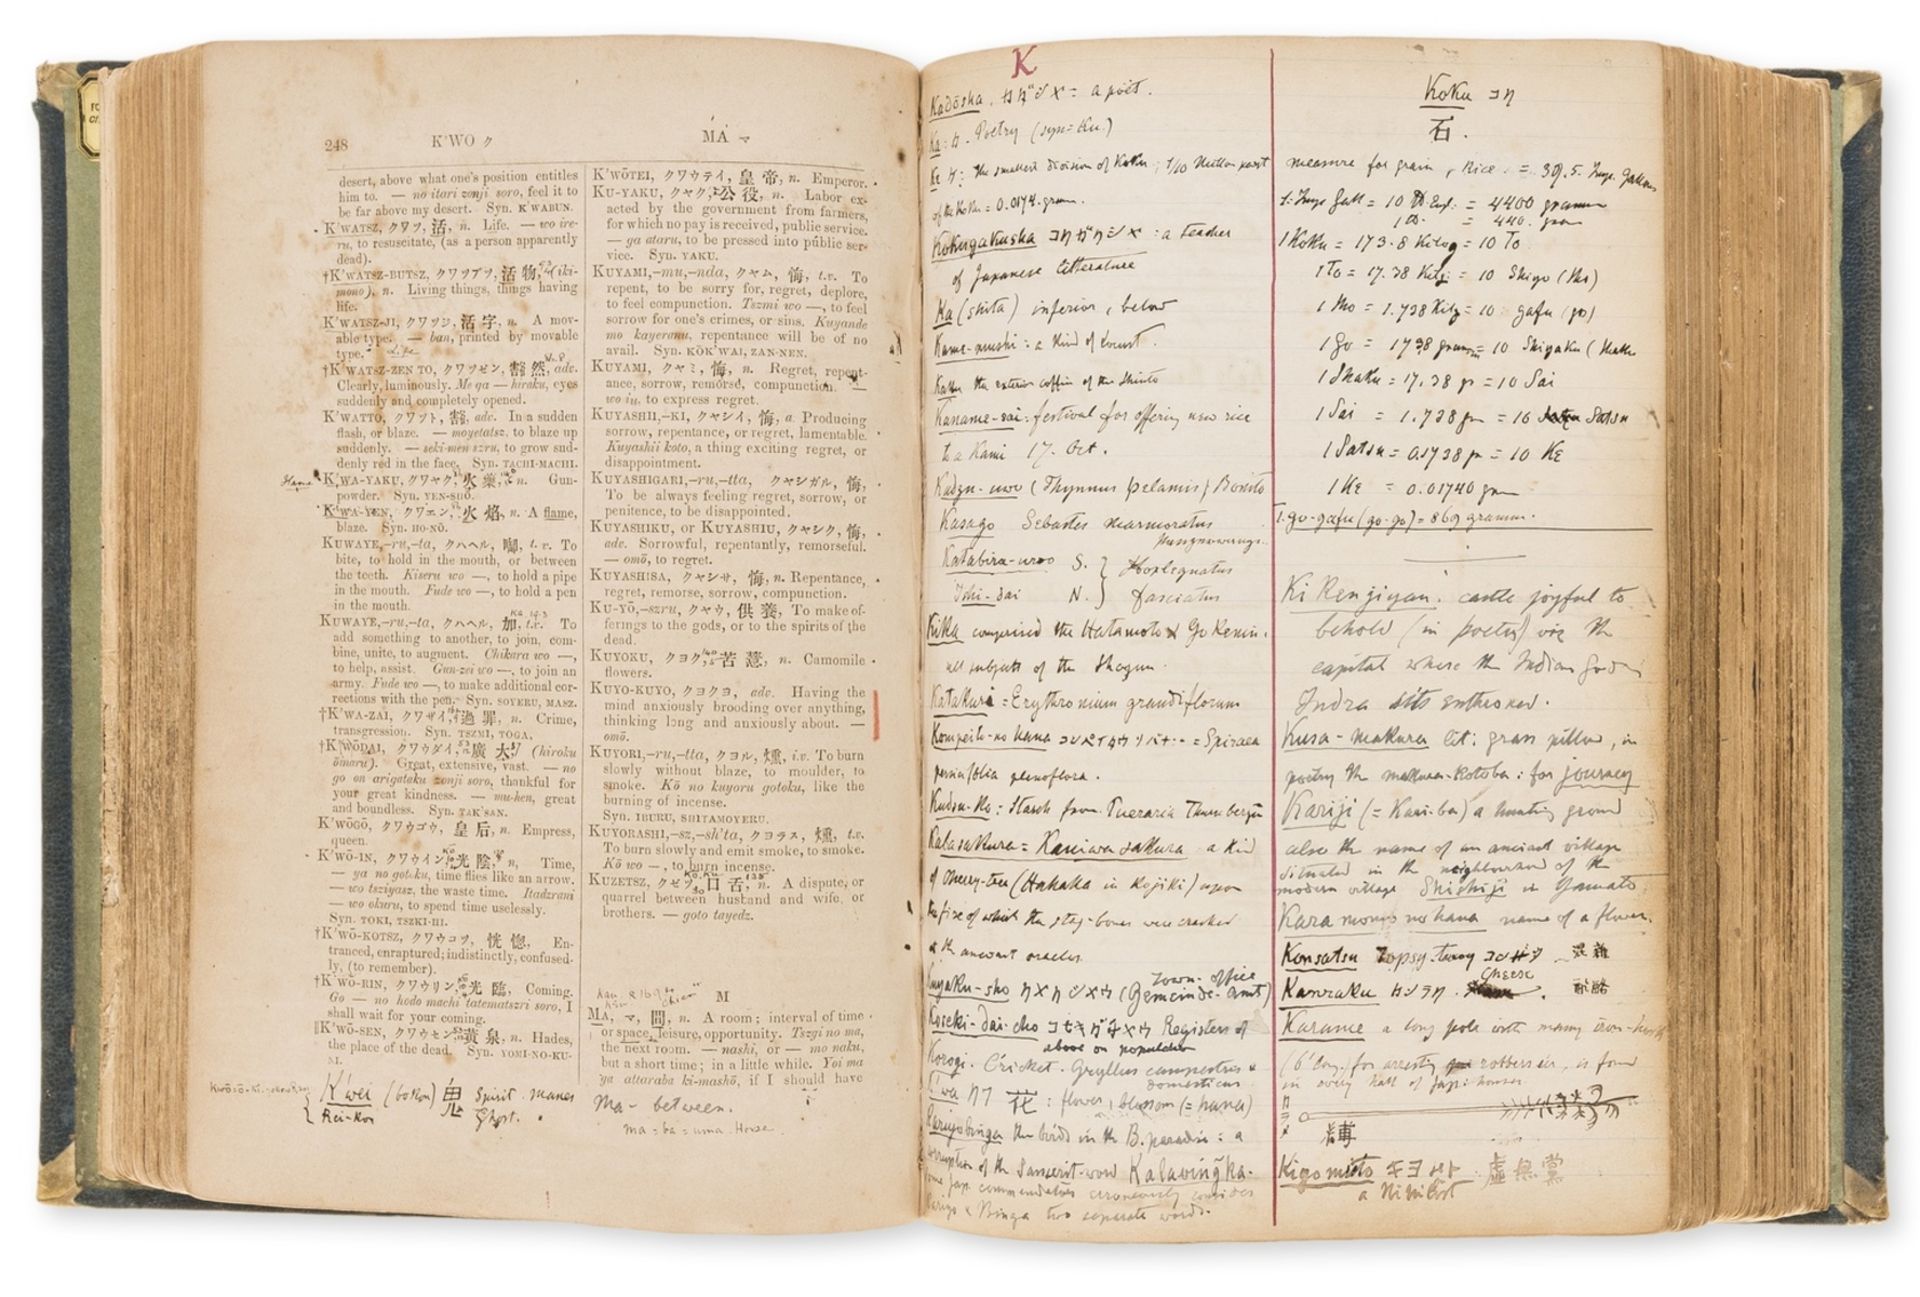 248
K'WO ク
MÁ マ
desert, above what one's position entitles
him to. — no itari zonji soro, feel it to
be far above my desert. Syn. K'WABUN.
K'WATSZ, クワツ, 活, n. Life. — wo ire-
ru, to resuscitate, (as a person apparently
dead).
†K'WATSZ-BUTSZ, クワツブツ, 活物, (iki-
mono), n. Living things, things having
life.
K'WATSZ-JI, クワツジ, 活字, n. A mov-
able type. — ban, printed by movable
type.
†K'WATSZ-ZEN TO, クワツゼン, 然, adv.
Clearly, luminously. Me ga — hiraku, eyes
suddenly and completely opened.
K'WATTO, クワツト, adv. In a sudden
flash, or blaze. — moyetatsz, to blaze up
suddenly. — seki-men szru, to grow sud-
denly red in the face. Syn. TACHI-MACHI.
K'WA-YAKU, クワヤク, 火藥, n. Gun-
powder. Syn. YEN-SHŌ.
K'WA-YEN, クワエン, 火焰, n. A flame,
blaze. Syn. HO-NŌ.
KUWAYE,-ru,-ta, クハヘル, t. v. To
bite, to hold in the mouth, or between
the teeth. Kiseru wo —, to hold a pipe
in the mouth. Fude wo —, to hold a pen
in the mouth.
KUWAYE,-ru,-ta, クハヘル, 加, t.v. To
add something to another, to join, com-
bine, unite, to augment. Chikara wo —,
to help, assist. Gun-zei wo —, to join an
army. Fude wo —, to make additional cor-
rections with the pen. Syn. SOYERU, MASZ.
†K'WA-ZAI, クワザイ, 過罪, n. Crime,
transgression. Syn. TSZMI, TOGA.
†K'WŌDAI, クワウダイ, 廣大, (hiroku
ōmaru). Great, extensive, vast. — no
go on arigataku zonji soro, thankful for
your great kindness. — mu-hen, great
and boundless. Syn. TAK'SAN.
K'WŌGŌ, クワウゴウ, 皇后, n. Empress,
queen.
K'WŌ-IN, クワウイン, 光陰, n. Time,
— ya no gotoku, time flies like an arrow.
— wo tsziyasz, the waste time. Itadzrani
— wo okuru, to spend time uselessly.
Syn. TOKI, TSZKI-HI.
†K'WŌ-KOTSZ, クワウコツ, 恍惚, En-
tranced, enraptured; indistinctly, confused-
ly, (to remember).
†K'WŌ-RIN, クワウリン, 光臨, Coming.
Go — no hodo machi tatematszri soro, I
shall wait for your coming.
‖K'WŌ-SEN, クワウセン, 黄泉, n. Hades,
the place of the dead. Syn. YOMI-NO-KU-
NI.
K'wei (bokon) 鬼 Spirit manes
Rei-kon Ghost.
K'WŌTEI, クワウテイ, 皇帝, n. Emperor.
KU-YAKU, クヤク, 公役, n. Labor ex-
acted by the government from farmers,
for which no pay is received, public service.
— ga ataru, to be pressed into public ser-
vice. Syn. YAKU.
KUYAMI,-mu,-nda, クヤム, 悔, t.v. To
repent, to be sorry for, regret, deplore,
to feel compunction. Tszmi wo —, to feel
sorrow for one's crimes, or sins. Kuyande
mo kayeranu, repentance will be of no
avail. Syn. KŌK'WAI, ZAN-NEN.
KUYAMI, クヤミ, 悔, n. Regret, repent-
ance, sorrow, remorse, compunction. —
wo iu, to express regret.
KUYASHII,-KI, クヤシイ, 悔, a. Producing
sorrow, repentance, or regret, lamentable.
Kuyashii koto, a thing exciting regret, or
disappointment.
KUYASHIGARI,-ru,-tta, クヤシガル, 悔,
To be always feeling regret, sorrow, or
penitence, to be disappointed.
KUYASHIKU, or KUYASHIU, クヤシク, 悔,
adv. Sorrowful, repentantly, remorseful.
— omō, to regret.
KUYASHISA, クヤシサ, 悔, n. Repentance,
regret, remorse, sorrow, compunction.
KU-YŌ,-szru, クヤウ, 供養, To make of-
ferings to the gods, or to the spirits of the
dead.
KUYOKU, クヨク, 苦薏, n. Camomile
flowers.
KUYO-KUYO, クヨクヨ, adv. Having the
mind anxiously brooding over anything,
thinking long and anxiously about. —
omō.
KUYORI,-ru,-tta, クヨル, 燻, i.v. To burn
slowly without blaze, to moulder, to
smoke. Kō no kuyoru gotoku, like the
burning of incense.
Syn. IBURU, SHITAMOYERU.
KUYORASHI,-sz,-sh'ta, クヨラス, 燻, t.v.
To burn slowly and emit smoke, to smoke.
Kō wo —, to burn incense.
KUZETSZ, クゼツ, 口舌, n. A dispute, or
quarrel between husband and wife, or
brothers. — goto tayedz.
M
MA, マ, 間, n. A room; interval of time
or space, leisure, opportunity. Tszgi no ma,
the next room. — nashi, or — mo naku,
but a short time; in a little while. Yoi ma
ga attaraba ki-mashō, if I should have
Ma - between.
ma = ba = uma Horse
K
Kadōsha. カダシャ = a poet.
Ka: カ. Poetry (syn= Ku.)
Ke ケ: the smallest division of Koku; 1/10 Million part
of the Koku = 0.0174 gram.
Kokugakusha コクガクシャ: a teacher
of Japanese litterature
Ka (shita) inferior, below
Kame-mushi: a kind of locust.
the exterior coffin of the Shinto
Kaname-sai: festival for offering new rice
to a Kami 17. Oct.
Kadzu-uwo (Thynnus pelamis) Bonito
Kasago Sebastes marmoratus
Katabira-uwo S. } Hoplegnatus
Ishi-dai N. } fasciatus
Kika comprised the Hatamoto & Go Kenin.
all subjects of the Shogun.
Katakuri = Erythronium grandiflorum
Kompeito-no hana = Spiraea
plenoflora.
Kudzu-Ko: Starch from Pueraria Thunbergii
Kalasakura = Kaniwa zakura a kind
of cherry-tree (Hahaka in Kojiki) upon
the fire of which the stag-bones were cracked
at the ancient oracles.
Kuyaku-sho クヤクショ (Town-office
Gemeinde-Amt)
Koseki-dai-cho コセキダイチョウ Registers of
above on population
Korogi. Cricket. Gryllus campestris &
domesticus
K'wa クワ 花: flower, blossom (= hana)
Kariyobinga the birds in the B. paradise: a
corruption of the Sanscrit-word Kalavingka.
some Jap. commentators erroneously consider
Kariyo & Binga two separate words.
Koku コク
石.
measure for grain, Rice = 39.5. Imp. Gallons
1. Imp Gall = 10 = 4400 gramm
= 440. gram
1 Koku = 173.8 Kilog = 10 To
1 To = 17.38 Kilg = 10 Shigo (Sho)
1 Sho = 1.738 Kilg = 10 gafu (go)
1 Go = 173.8 gramm = 10 Shigaku (Shaku
1 Shaku = 17.38 gr = 10 Sai
1 Sai = 1.738 gm = 10 Satsu
1 Satsu = 0.1738 gr = 10 Ke
1 Ke = 0.01740 gm
1. go-gafu (go-go) = 869 gramm.
Ki Kenjiyau: castle joyful to
behold (in poetry) viz the
capital where the Indian God
Indra sits enthroned.
Kusa-makura lit: grass pillow, in
poetry the makura-Kotoba: for journey
Kariji (= Kari-ba) a hunting ground
also the name of an ancient village
situated in the neighbourhood of the
modern village Shishiji in Yamato
Kara momo no hana name of a flower.
Konsatsu Topsy-turvy コンザツ 混雜
Kanraku カンラク Cheese. 酪
Karame a long pole with many iron-hooks
(6' long) for arresting robbers etc, is found
in every hall of Jap: houses
Kiyomuto キヨムト 虛無黨
a Nihilist